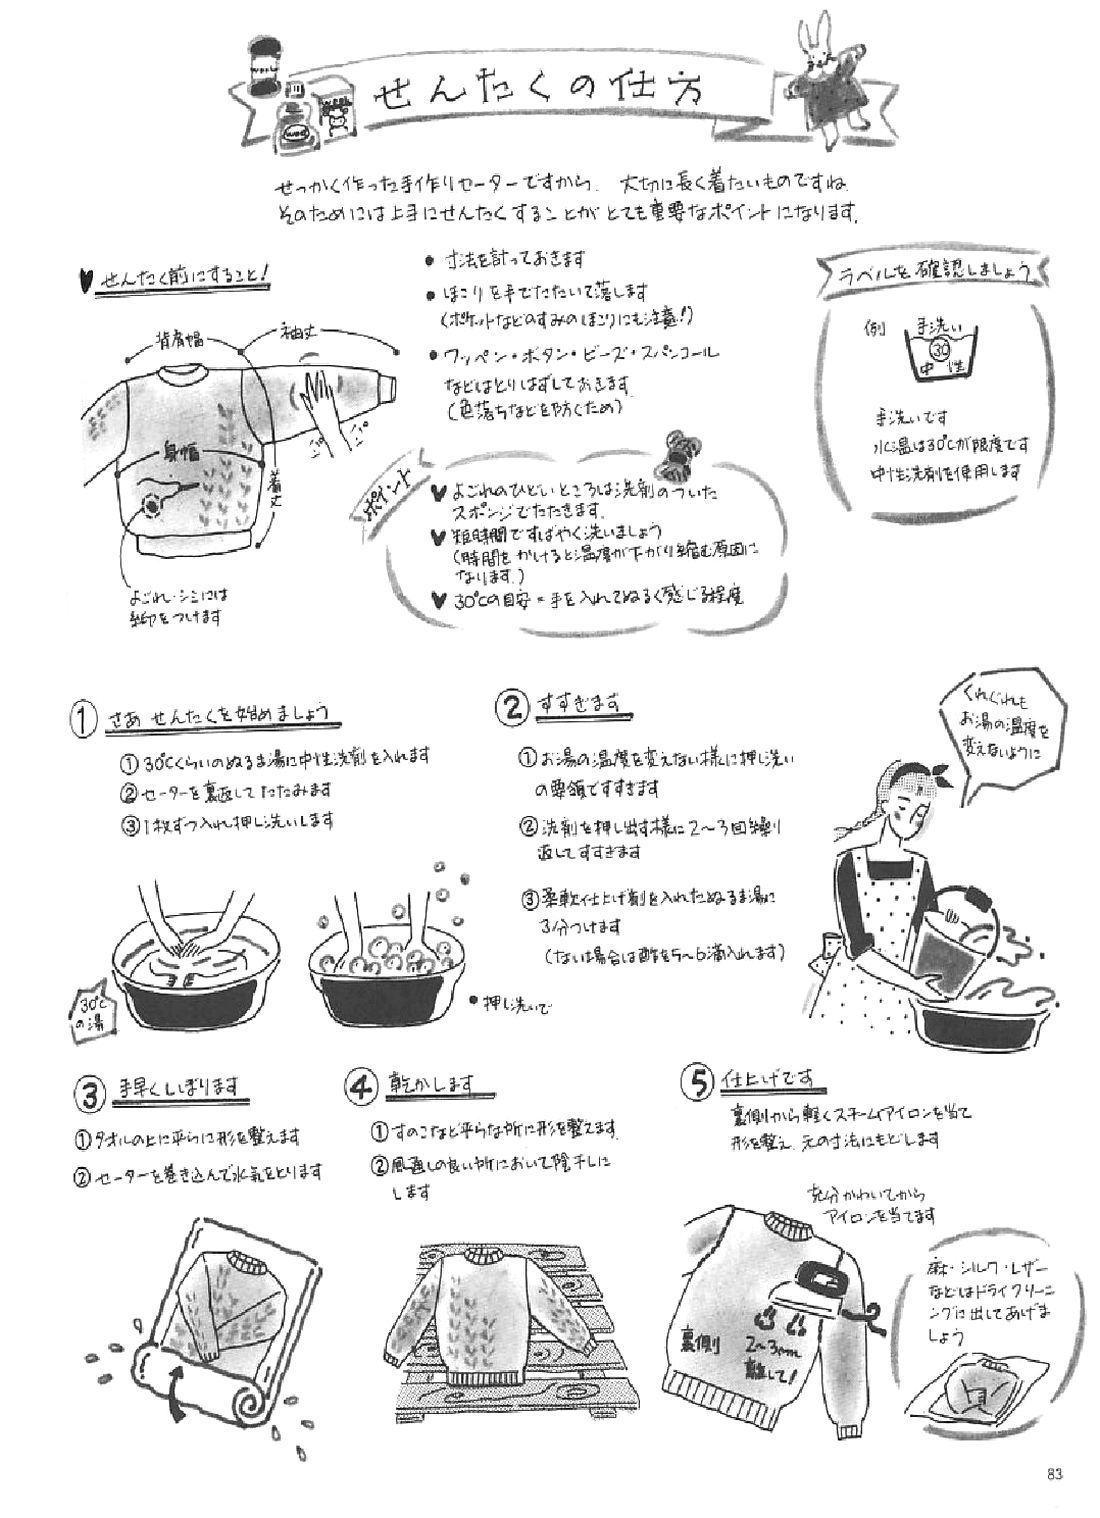 せんたくの仕方
WOOL
WOOL
せっかく作った手作りセーターですから、大切に長く着たいものですね。
そのためには上手にせんたくすることがとても重要なポイントになります。
せんたく前にすること!
背肩幅
袖丈
身幅
着丈
よごれ・シミには
糸印をつけます
● 寸法を計っておきます
● ほこりを手でたたいて落します
(ポケットなどのすみのほこりにも注意!)
● ワッペン・ボタン・ビーズ・スパンコール
などはとりはずしておきます
(色落ちなどを防ぐため)
ラベルを確認しましょう
例
手洗い
30
中性
手洗いです
水温は30℃が限度です
中性洗剤を使用します
ポイント
♥ よごれのひどいところは洗剤のついた
スポンジでたたきます。
♥ 短時間ですばやく洗いましょう
(時間をかけると温度が下がり縮む原因に
なります。)
♥ 30℃の目安=手を入れてぬるく感じる程度
① さあ せんたくを始めましょう
① 30℃くらいのぬるま湯に中性洗剤を入れます
② セーターを裏返してたたみます
③ 1枚ずつ入れ押し洗いします
30℃
の湯
● 押し洗いで
② すすぎます
① お湯の温度を変えない様に押し洗い
の要領ですすぎます
② 洗剤を押し出す様に2〜3回繰り
返してすすぎます
③ 柔軟仕上げ剤を入れたぬるま湯に
3分つけます
(ない場合は酢を5〜6滴入れます)
くれぐれも
お湯の温度を
変えないように
③ 手早くしぼります
① タオルの上に平らに形を整えます
② セーターを巻き込んで水気をとります
④ 乾かします
① すのこなど平らな所に形を整えます。
② 風通しの良い所において陰干しに
します
⑤ 仕上げです
裏側から軽くスチームアイロンを当て
形を整え、元の寸法にもどします
充分かわいてから
アイロンを当てます
裏側
2〜3cm
離して!
麻・シルク・レザー
などはドライクリーニ
ングに出してあげま
しょう
83